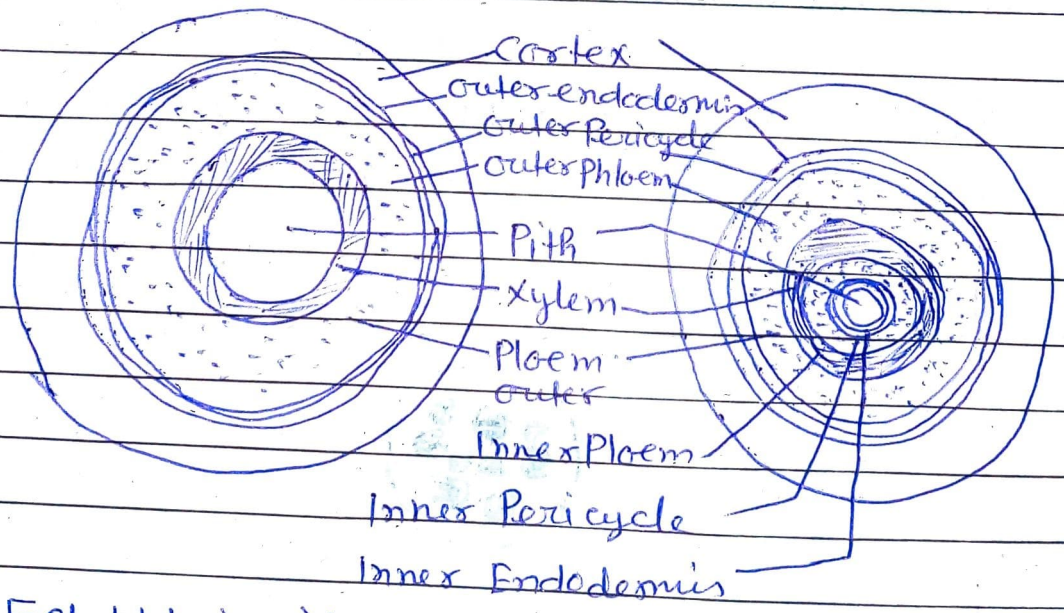 Cortex
outer endodermis
outer Pericycle
outer Phloem
Pith
Xylem
Ploem
outer
Inner Ploem
Inner Pericycle
Inner Endodermis